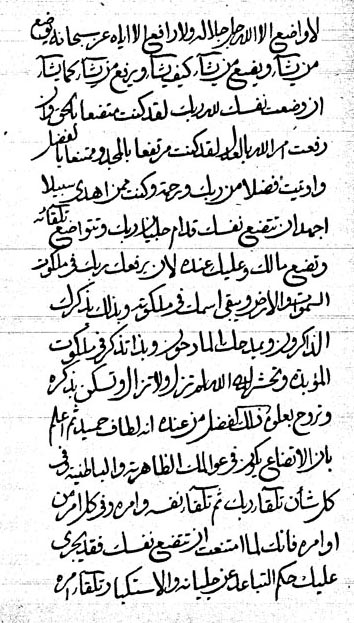 لا واضع الا الله جل جلاله ولا رافع الا اياه عز سبحانه وضع
من يشاء ويضع من يشاء كيف يشاء ويرفع من يشاء كما يشاء
ان وضعت نفسك لله ربك لقد كنت متضعا بالحق وان
رفعت امر الله بالعدل لقد كنت مرتفعا بالمجد وممتنعا بالفضل
واوتيت فضلا من ربك ورحمة وكنت ممن اهدى سبيلا
اجهد ان تتضع نفسك قدام جلال ربك وتتواضع تلقائه
وتضع مالك وعليك عنده لان يرفعك ربك في ملكوت
السموات والارض ويبقى اسمك في ملكوته وبذلك يذكرك
الذاكرون ويمدحك المادحون وبذا تذكر في ملكوت
الله لم تزل ولا تزال وتسكن بذكره
وتروح بعلوه ذلك لفضل من عنده انه لطاف حميد ثم اعلم
بان الاتضاع يكون في عوالمك الظاهرية والباطنية وفي
كل شأن تلقاء ربك ثم تلقاء نفسه وامره وفي كل امر من
اوامره فانك لما امتنعت ان تتضع نفسك فقد يجري
عليك حكم التباعد عن والاستكبار تلقاء امره